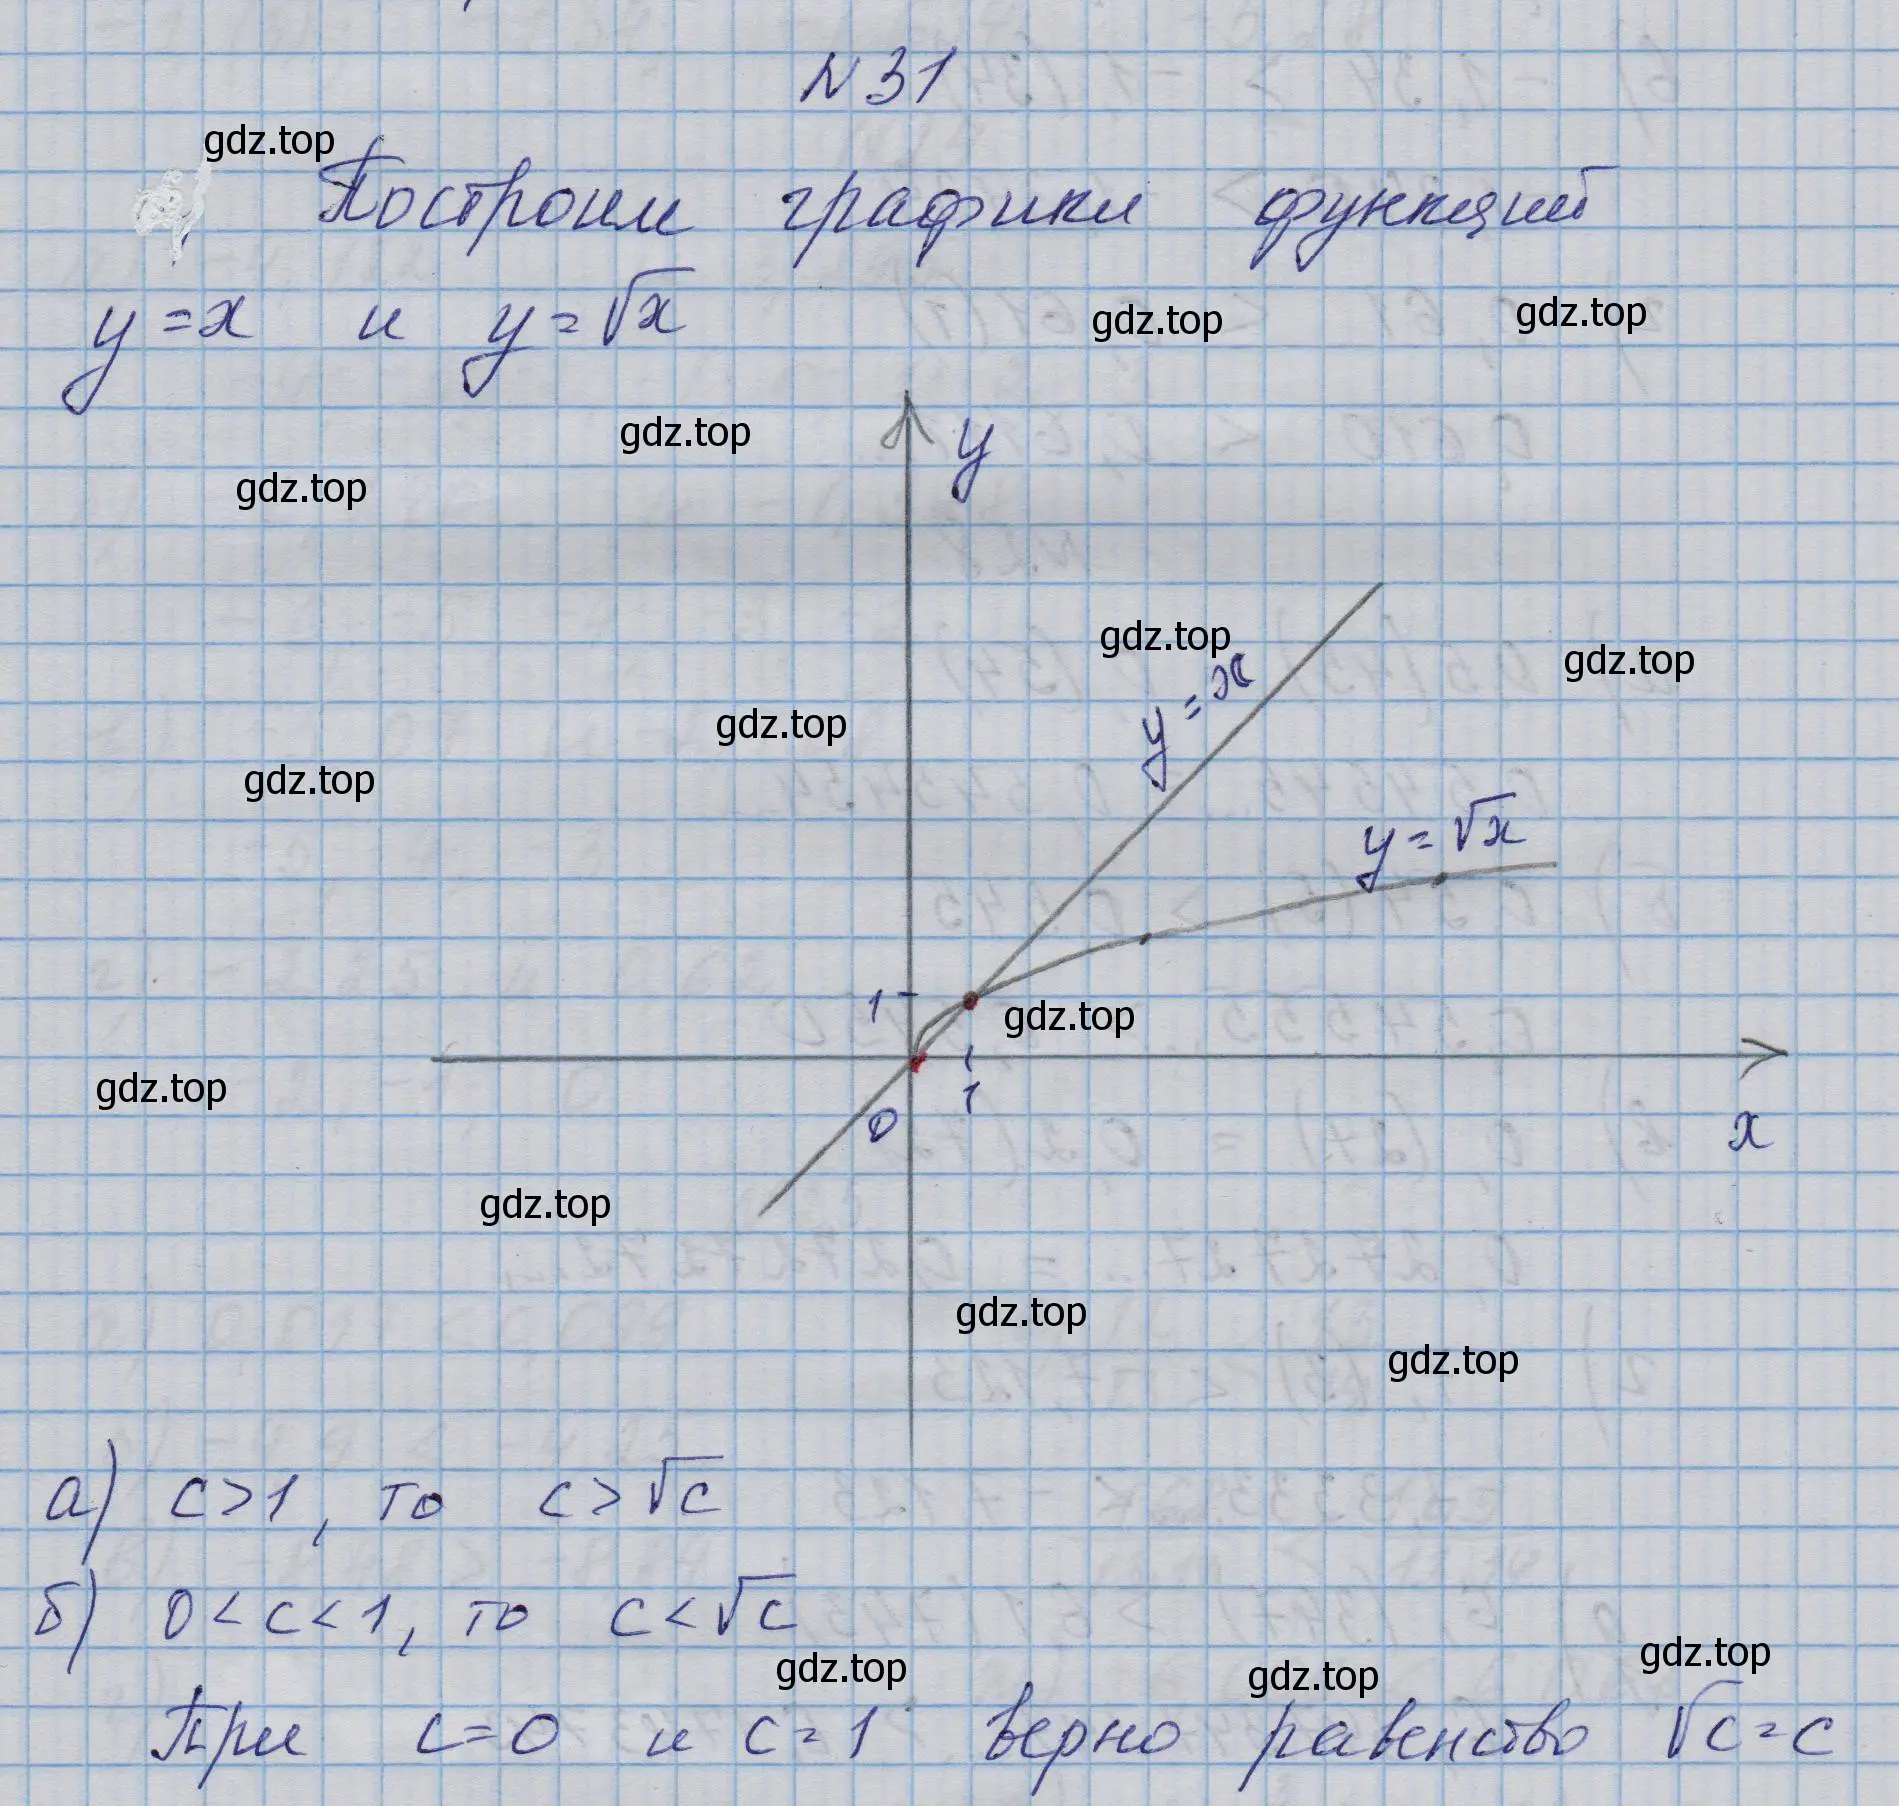 N31
gdz.top
Построим графики функций
y=x и y=√x
gdz.top
gdz.top
gdz.top
y
gdz.top
gdz.top
y=x
gdz.top
gdz.top
gdz.top
y=√x
1
gdz.top
gdz.top
0
1
x
gdz.top
gdz.top
gdz.top
а) c>1, то c>√c
б) 0<c<1, то c<√c
gdz.top
gdz.top
gdz.top
При c=0 и c=1 верно равенство √c=c